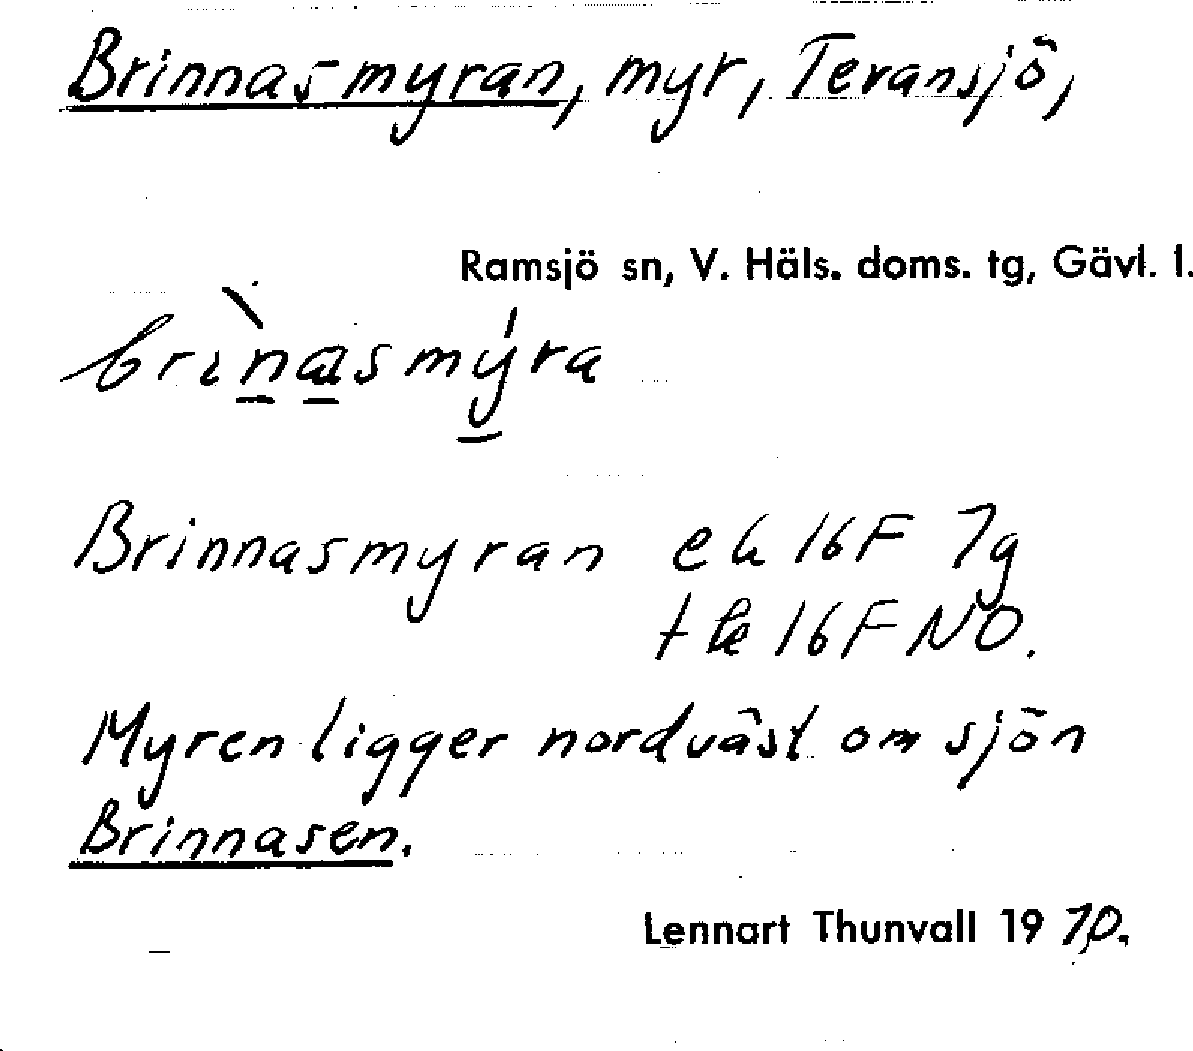 Brinnasmyran, myr, Tevansjö,
Ramsjö sn, V. Häls. doms. tg, Gävl. l.
brìnasmýra
Brinnasmyran ek 16F 7g
tk 16F NO.
Myren ligger nordväst om sjön
Brinnasen.
Lennart Thunvall 1970.